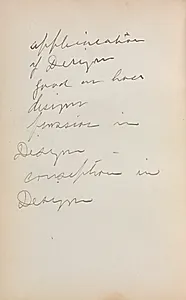 application
of Design
good or bad
design
 in
Design -
conception in
Design